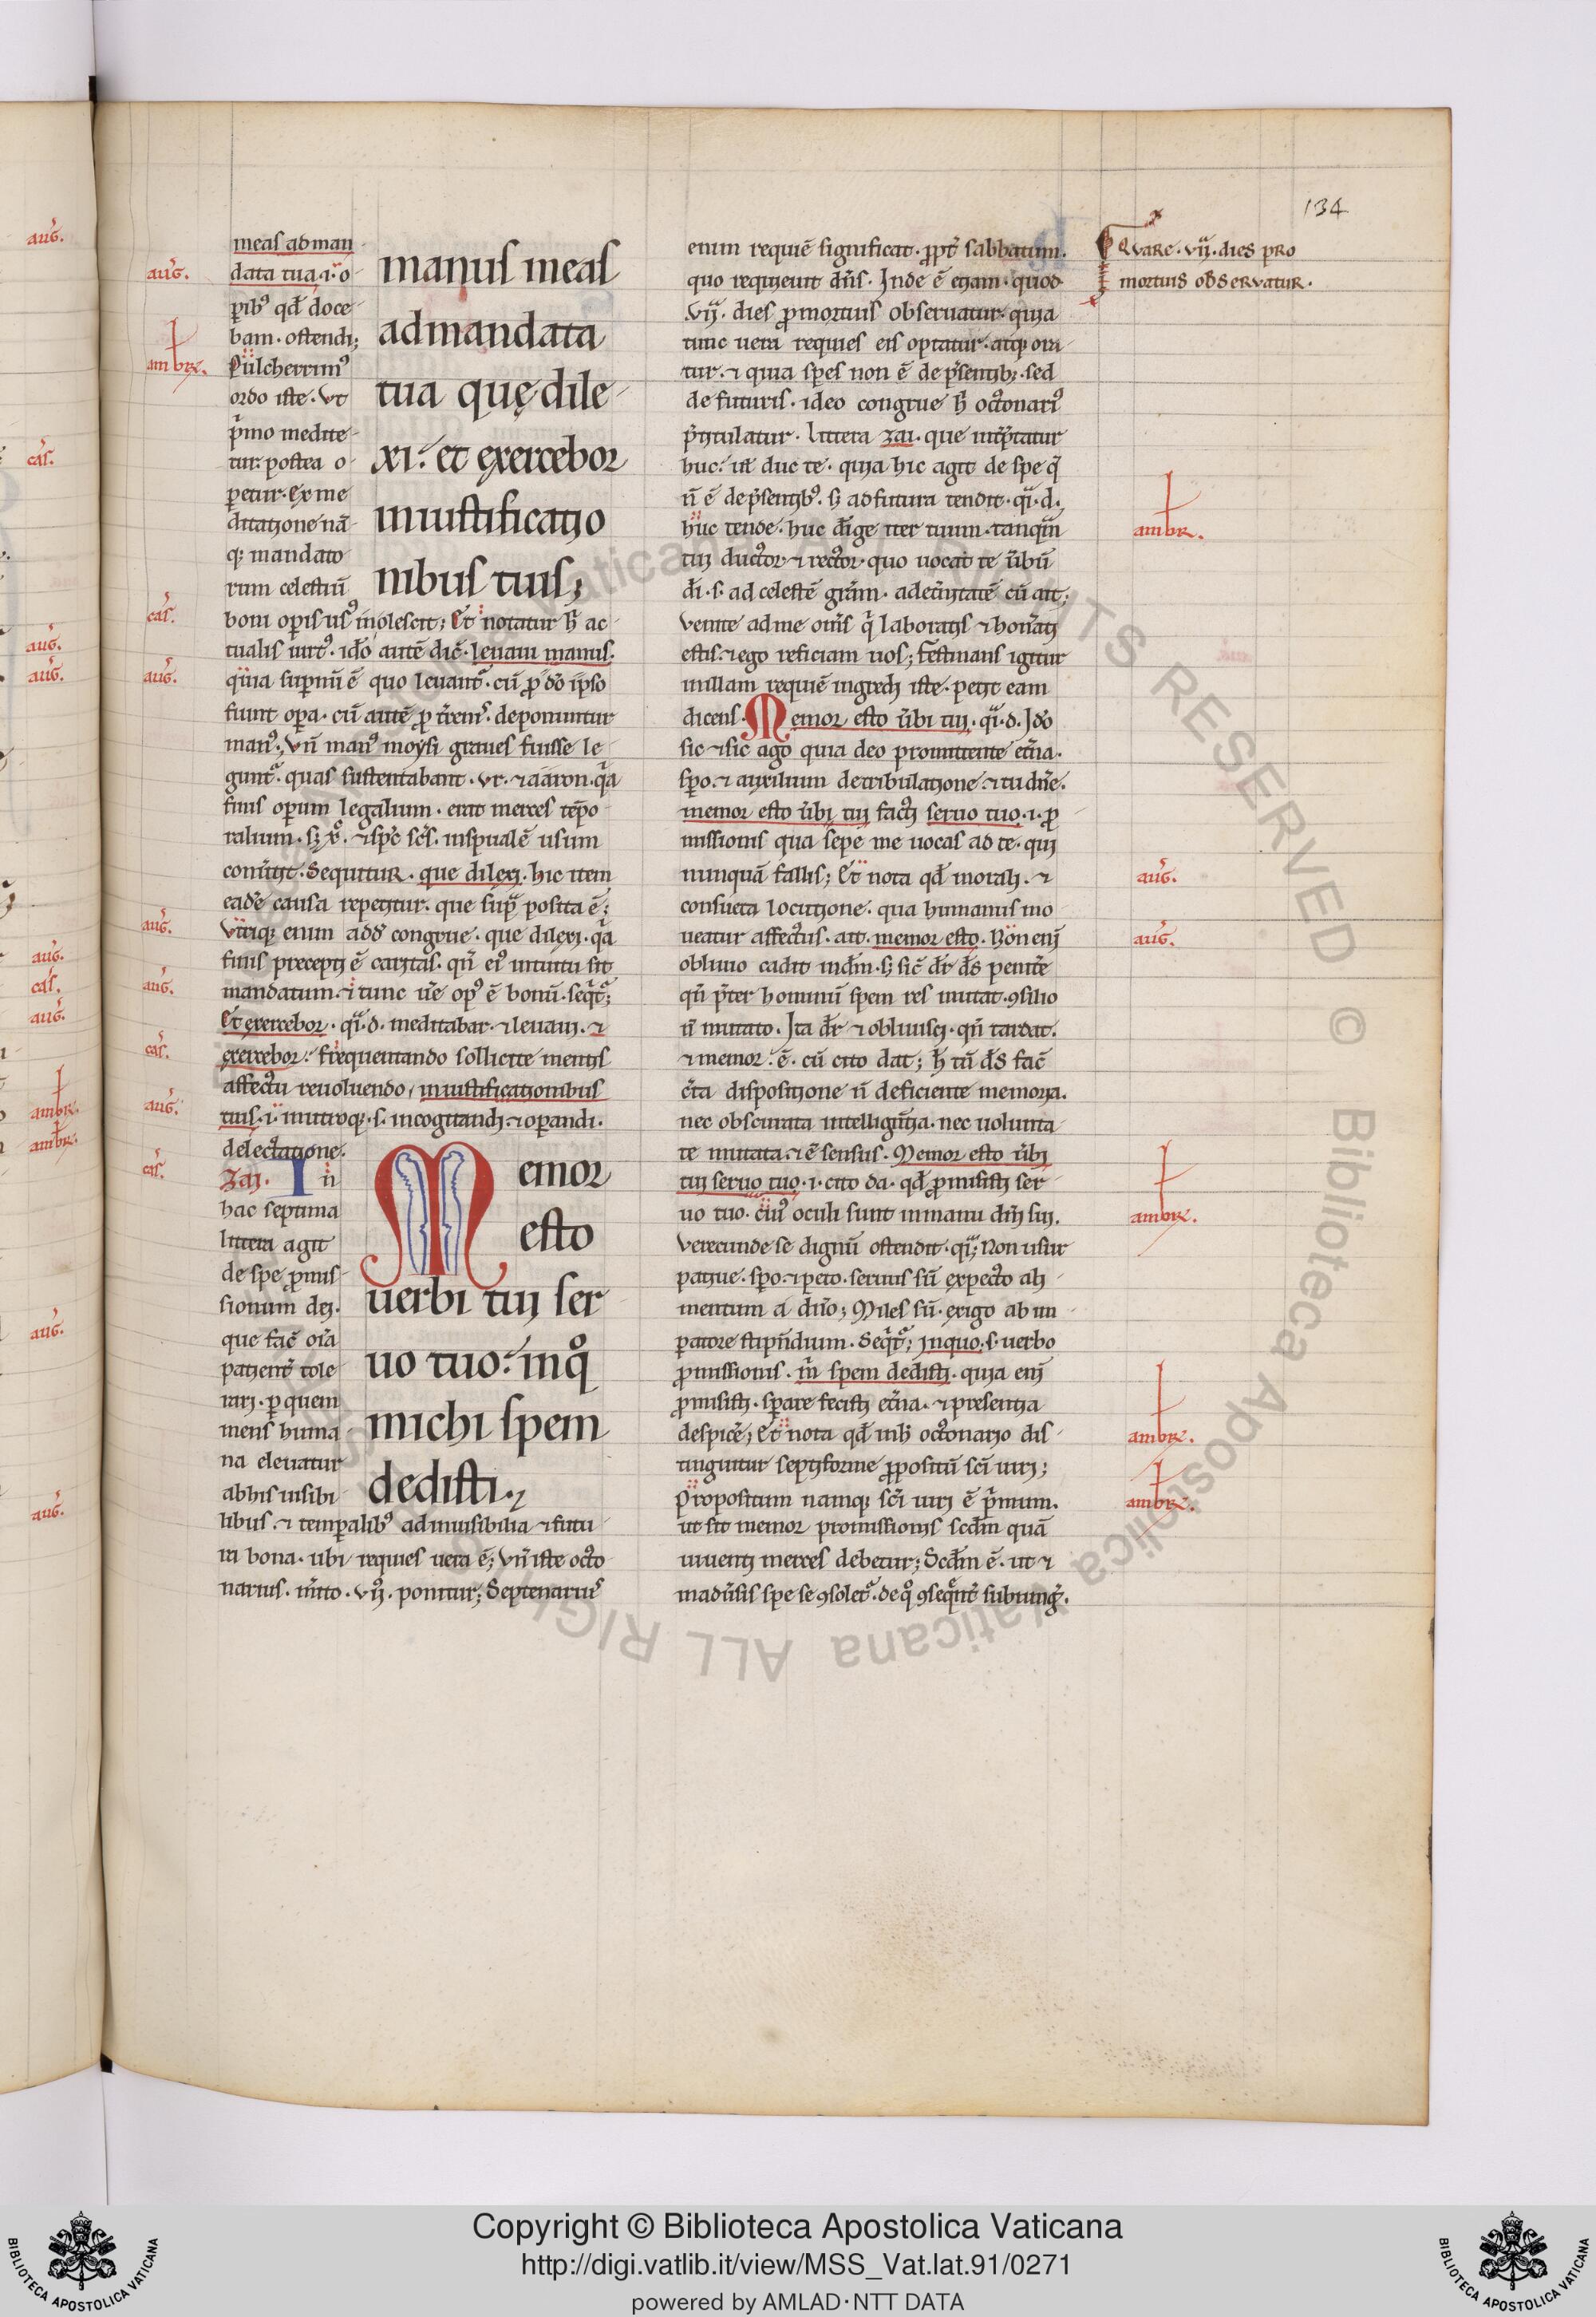 134
meas ad man
data tua .i. o
pib9 qđ doce
bam. ostendi;
Pulcherrim9
ordo iste. Vt
pmo medite
tur: postea o
petur. Ex me
ditatione nā
q; mandato
rum celestiū
boni opis us9 inolescit; Et notatur h ac
tualis uirt9. iđo autē dic. leuaui manus.
quia supnū ē quo leuant. cū p đo ipso
fiunt opa. cū autē p tren9. deponuntur
man9. Vn man9 moysi graues fuisse le
gunt. quas sustentabant. vr. ⁊ aaron. qa
finis opum legalium. erat merces tēpo
ralium. s; xc. ⁊ spc scs. in spualē usum
conūtit. Sequitur. que dilexi. hic item
eadē causa repetitur. que sup posita ē;
Vtriq; enim add congrue. que dilexi. qa
finis precepti ē caritas. qn ei9 intuitu fit
mandatum. ⁊ tunc ūe op9 ē bonū. seqt;
Et exercebor. qi.d. meditabar. ⁊ leuaui. ⁊
exercebor: frequentando sollicite mentis
affectu reuoluendo, in iustificationibus
tuis .i. in utroq;. s. in cogitandi ⁊ opandi.
delectatione.
Zai. In
hac septima
littera agit
de spe pmis
sionum dei.
que fac oīa
patient tole
rari. p quem
mens huma
na eleuatur
ab his uisibi
libus. ⁊ tempalib9 ad inuisibilia ⁊ futu
ra bona. ubi requies uera ē; Vn iste octo
narius. mito. vij. ponitur; Septenarius
manus meas
ad mandata
tua quę dile
xi: et exercebor
in iustificatio
nibus tuis;
Memor
esto
uerbi tui ser
uo tuo: in qo
michi spem
dedisti.
enim requiē significat. ppt sabbatum.
quo requieuit dns. Inde ē etiam. quod
vij. dies p mortuis obseruatur. quia
tunc uera requies eis optatur. atq; ora
tur. ⁊ quia spes non ē de psentib;. sed
de futuris. ideo congrue h octonari9
ptitulatur. littera zai. que intptatur
huc. ul duc te. quia hic agit de spe q
n ē de psentib9. s; ad futura tendit. qi.d.
huc tende. huc dige iter tuum. tanqm
tui ductor ⁊ rector. quo uocat te ūbū
di. s. ad celestē gram. ad etnitatē cū ait;
Venite ad me oms q laboratis ⁊ honati
estis. ⁊ ego reficiam uos; festinans igitur
in illam requiē ingredi iste. petit eam
dicens. Memor esto ūbi tui. qi.d. Ido
sic ⁊ sic ago quia deo promittente etna.
spo. ⁊ auxilium de tribulatione. ⁊ tu dne.
memor esto ūbi tui facti seruo tuo .i. p
missionis qua sepe me uocas ad te. qui
nunquā fallis; Et nota qđ morali. ⁊
consueta locutione. qua humanus mo
ueatur affectus. ait. memor esto. Non eni
obliuio cadit in dm. s; sic dr ds penite
qn pter hominū spem res mutat. 9silio
n mutato. Ita dr ⁊ obliuisci. qn tardat.
⁊ memor: ē. cū cito dat; h tū ds fac
cta dispositione n deficiente memoria.
nec obscurata intelligntia. nec uolunta
te mutata. ⁊ ē sensus. Memor esto ūbi
tui seruo tuo .i. cito da. qđ pmisisti ser
uo tuo. cui9 oculi sunt in manu dni sui.
Verecunde se dignū ostendit. qi; Non usur
patiue. spo. ⁊ peto. seruus sū expecto ali
mentum a dno; Miles sū. exigo ab im
patore stipndium. Seqt; In quo. s. uerbo
pmissionis. m spem dedisti. quia eni
pmisisti. spare fecisti etna. ⁊ presentia
despice; Et nota qđ in h octonario dis
tinguitur septiforme ppositū sci uiri;
Propositum namq; sci uiri ē pmum.
ut sit memor promissionis scdm quā
uiuenti merces debetur; Scdm ē. ut ⁊
in aduersis spe se 9solet. de q 9seqnt subiungit.
QVARE. vij. dies pro
mortuis observatur.
aug.
ambr.
cas.
aug.
aug.
aug.
cas.
aug.
cas.
ambr.
aug.
aug.
ambr.
ambr.
ambr.
aug.
cas.
aug.
aug.
aug.
cas.
aug.
ambr.
ambr.
aug.
aug.
Copyright © Biblioteca Apostolica Vaticana
http://digi.vatlib.it/view/MSS_Vat.lat.91/0271
powered by AMLAD·NTT DATA
BIBLIOTECA APOSTOLICA VATICANA
BIBLIOTECA APOSTOLICA VATICANA
© Biblioteca Apostolica Vaticana ALL RIGHTS RESERVED